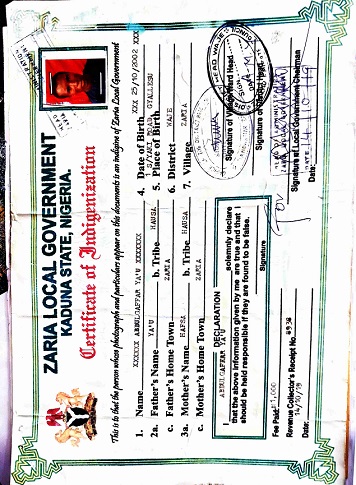 ZARIA LOCAL GOVERNMENT
KADUNA STATE, NIGERIA.
Certificate of Indigenization
This is to that the person whose photograph and particulars appear on this documents is an indigine of Zaria Local Government
1. Name XXXXXX ABDULGAFFAR YA'U XXXXXXX
2a. Father's Name YA'U b. Tribe HAUSA
c. Father's Home Town ZARIA
3a. Mother's Name HAFSA b. Tribe HAUSA
c. Mother's Home Town ZARIA
4. Date of Birth XXX 25/10/2002 XXX
5. Place of Birth GYALLESU
6. District WAJE
7. Village ZARIA
DECLARATION
I ABDULGAFFAR YA'U solemnly declare
that the above information given by me are true and that
should be held responsible if they are found to be false.
Signature
Signature of Village/Ward Head
Signature of District Head
Signature of Local Government Chairman
Date
Fee Paid: 1,000
Revenue Collector's Receipt No.
Date: 14/10/19